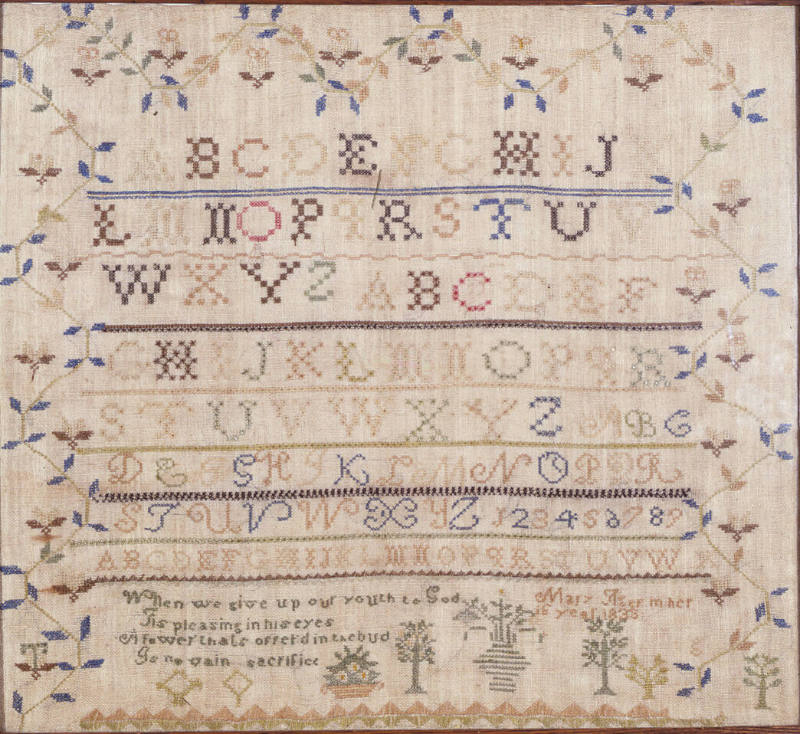 A B C D E F G H I J
L M N O P Q R S T U V
W X Y Z A B C D E F
G H I J K L M N O P Q R
S T U V W X Y Z A B C
D E F G H I K L M N O P Q R
S T U V W X Y Z 1 2 3 4 5 6 7 8 9
A B C D E F G H I J K L M N O P Q R S T U V W X
When we give up our youth to God
Tis pleasing in his eyes
A flower thats offerd in the bud
Is no vain sacrifice
Mary
her
T